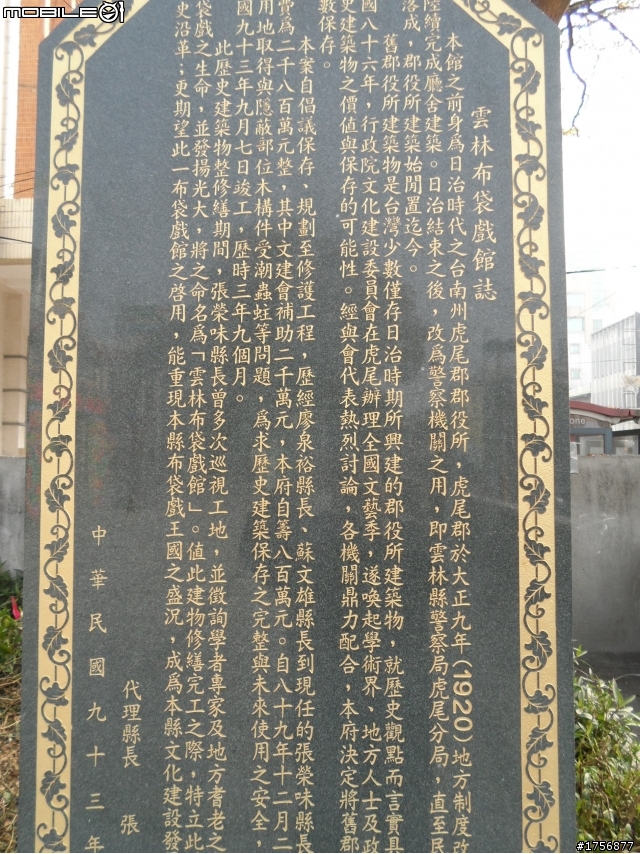 MOBILE01
雲林布袋戲館誌
本館之前身為日治時代之台南州虎尾郡郡役所，虎尾郡於大正九年(1920)地方制度改
陸續完成廳舍建築。日治結束之後，改為警察機關之用，即雲林縣警察局虎尾分局，直至民
落成，郡役所建築始閒置迄今。
舊郡役所建築物是台灣少數僅存日治時期所興建的郡役所建築物，就歷史觀點而言實具
國八十六年，行政院文化建設委員會在虎尾辦理全國文藝季，遂喚起學術界、地方人士及政
史建築物之價值與保存的可能性。經與會代表熱烈討論，各機關鼎力配合，本府決定將舊郡
數保存。
本案自倡議保存、規劃至修護工程，歷經廖泉裕縣長、蘇文雄縣長到現任的張榮味縣長
費為二千八百萬元整，其中文建會補助二千萬元，本府自籌八百萬元。自八十九年十二月二
用地取得與隱蔽部位木構件受潮蟲蛀等問題，為求歷史建築保存之完整與未來使用之安全，
國九十三年九月七日竣工，歷時三年九個月。
此歷史建築物整修繕期間，張榮味縣長曾多次巡視工地，並徵詢學者專家及地方耆老之
袋戲之生命，並發揚光大，將之命名為「雲林布袋戲館」。值此建物修繕完工之際，特立此
史沿革；更期望此一布袋戲館之啓用，能重現本縣布袋戲王國之盛況，成為本縣文化建設發
代理縣長　張
中華民國九十三年
#1756877